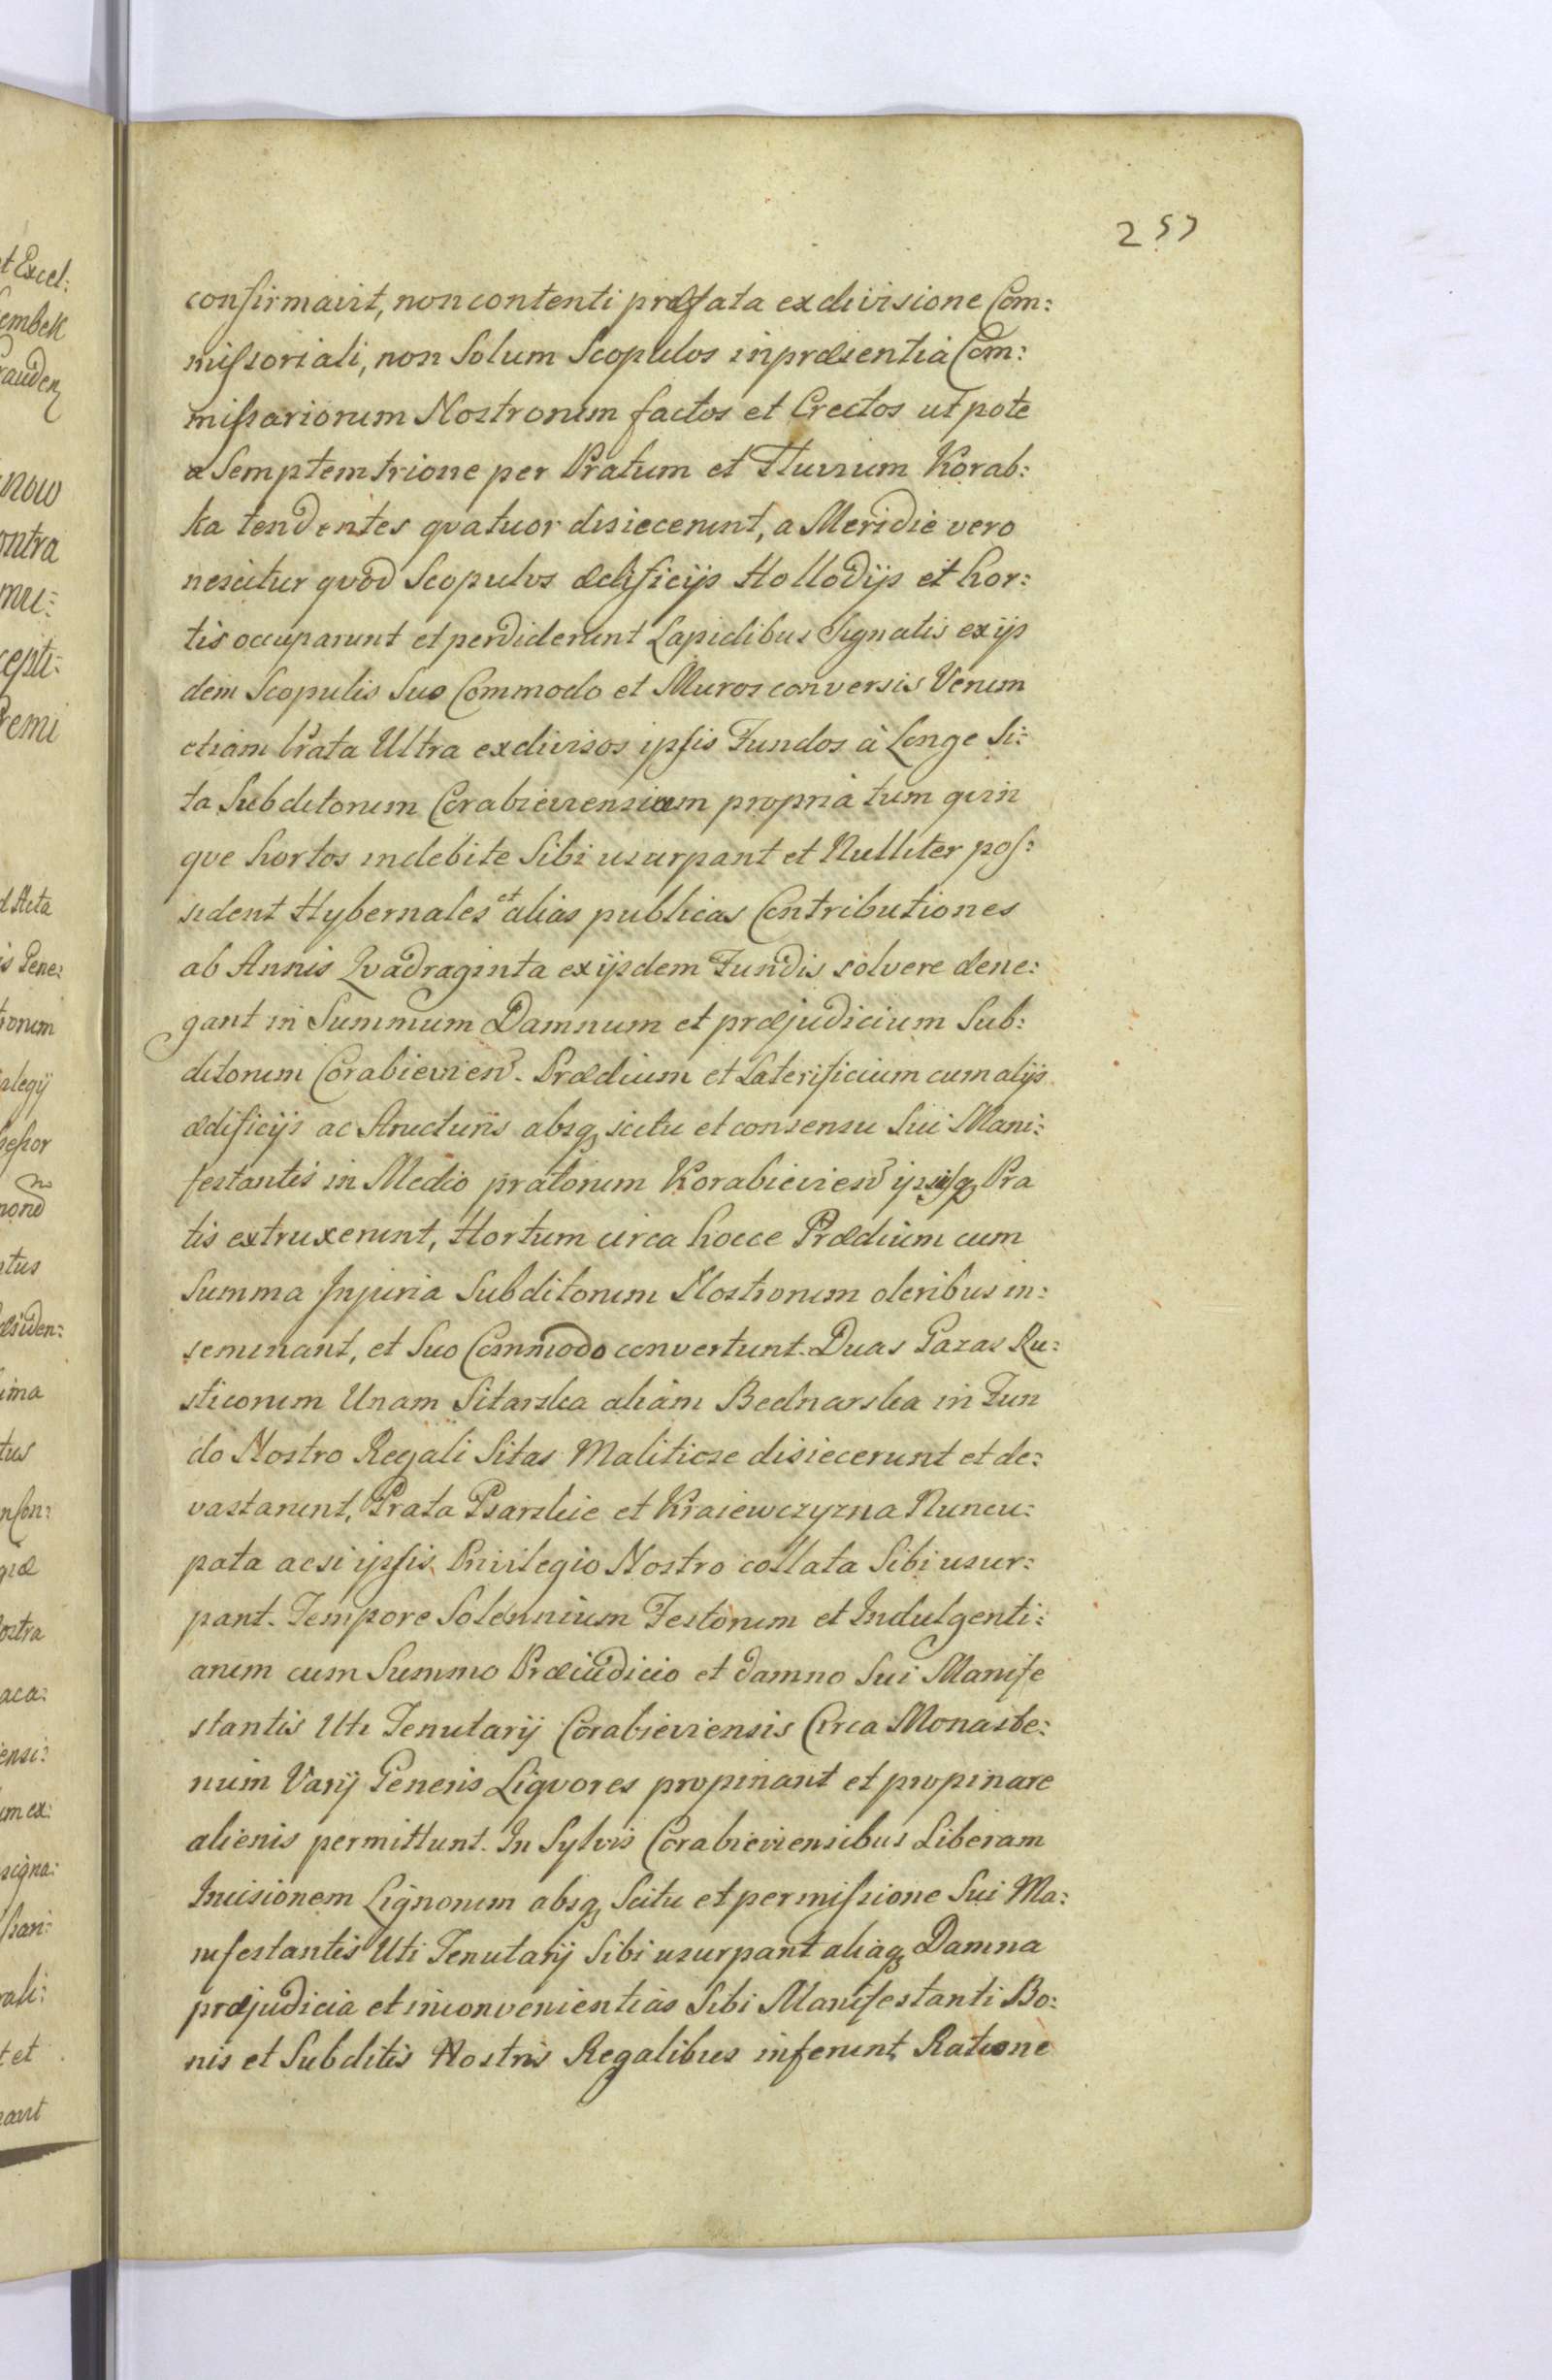 257
confirmavit, non contenti præfata exdivisione Com:
missoriali, non Solum Scopulos in præsentia Com:
missariorum Nostrorum factos et Erectos utpote
a Semptemtrione per Pratum et Fluvium Korab:
ka tendentes qvatuor disiecerunt, a Meridie vero
nescitur qvod Scopulos ædificijs Hollodijs et hor:
tis occuparunt et perdiderunt Lapidibus Signatis ex ijs
dem Scopulis Suo Commodo et Muros conversis Verum
etiam Prata Ultra exdivisos ipsis Fundos à Longe Si:
ta Subditorum Corabieviensium propria tum qvin
qve hortos indebite Sibi usurpant et Nulliter pos:
sident Hybernales et alias publicas Contributiones
ab Annis Qvadraginta ex ijsdem Fundis solvere dene:
gant in Summum Damnum et præjudicium Sub:
ditorum Corabievien. Prædium et Laterificium cum alijs
ædificijs ac Structuris absq scitu et consensu Sui Mani:
festantis in Medio pratorum Korabievien ipsisq Pra
tis extruxerunt, Hortum circa hocce Prædium cum
Summa Injuria Subditorum Nostrorum oleribus in:
seminant, et Suo Commodo convertunt. Duas Gazas Ru:
sticorum Unam Sitarska aliam Bednarska in Fun
do Nostro Regali Sitas Malitiose disiecerunt et de:
vastarunt, Prata Psarskie et Kraiewczyzna Nuncu:
pata acsi ipsis Privilegio Nostro collata Sibi usur:
pant. Tempore Solennium Festorum et Indulgenti:
arum cum Summo Præiudicio et damno Sui Manife
stantis Uti Tenutarij Corabieviensis Circa Monaste:
rium Varij Generis Liqvores propinant et propinare
alienis permittunt. In Sylvis Corabieviensibus Liberam
Incisionem Lignorum absq Scitu et permissione Sui Ma:
nifestantis Uti Tenutarij Sibi usurpant aliaq Damna
præjudicia et inconvenientias Sibi Manifestanti Bo:
nis et Subditis Nostris Regalibus inferunt Ratione